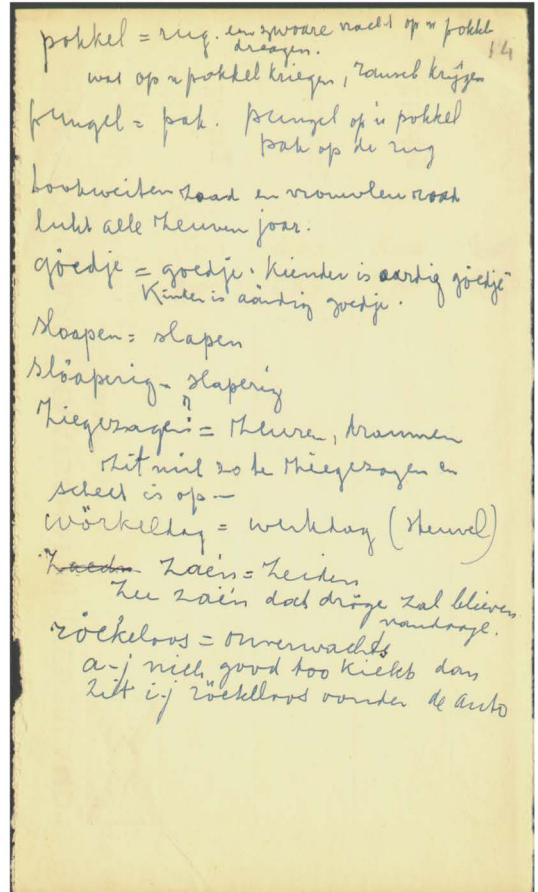 pokkel = rug. een zwoare vracht op 'n pokkel
dreagen.
14
wat op 'n pokkel kriegen, ransel krijgen
pungel = pak. pungel op 'n pokkel
pak op de rug
bookweiten zoad en vrouwleu road
lukt alle zeuven joar.
göedje = goedje. Kiender is aardig göedje
Kinder is aandig goedje.
sloapen = slapen
slöaperig = slaperig
ziegezagen? = zeuren, drammen
zit niet zo te ziegezagen en
scheet is op -
wörkeldag = werkdag (Heuvel)
zaen = zeiden
zee zaen dat dröge zal blieven
vandaage.
röekeloos = onverwachts
a-j niet good too kiekt dan
zit i-j röekeloos oonder de auto